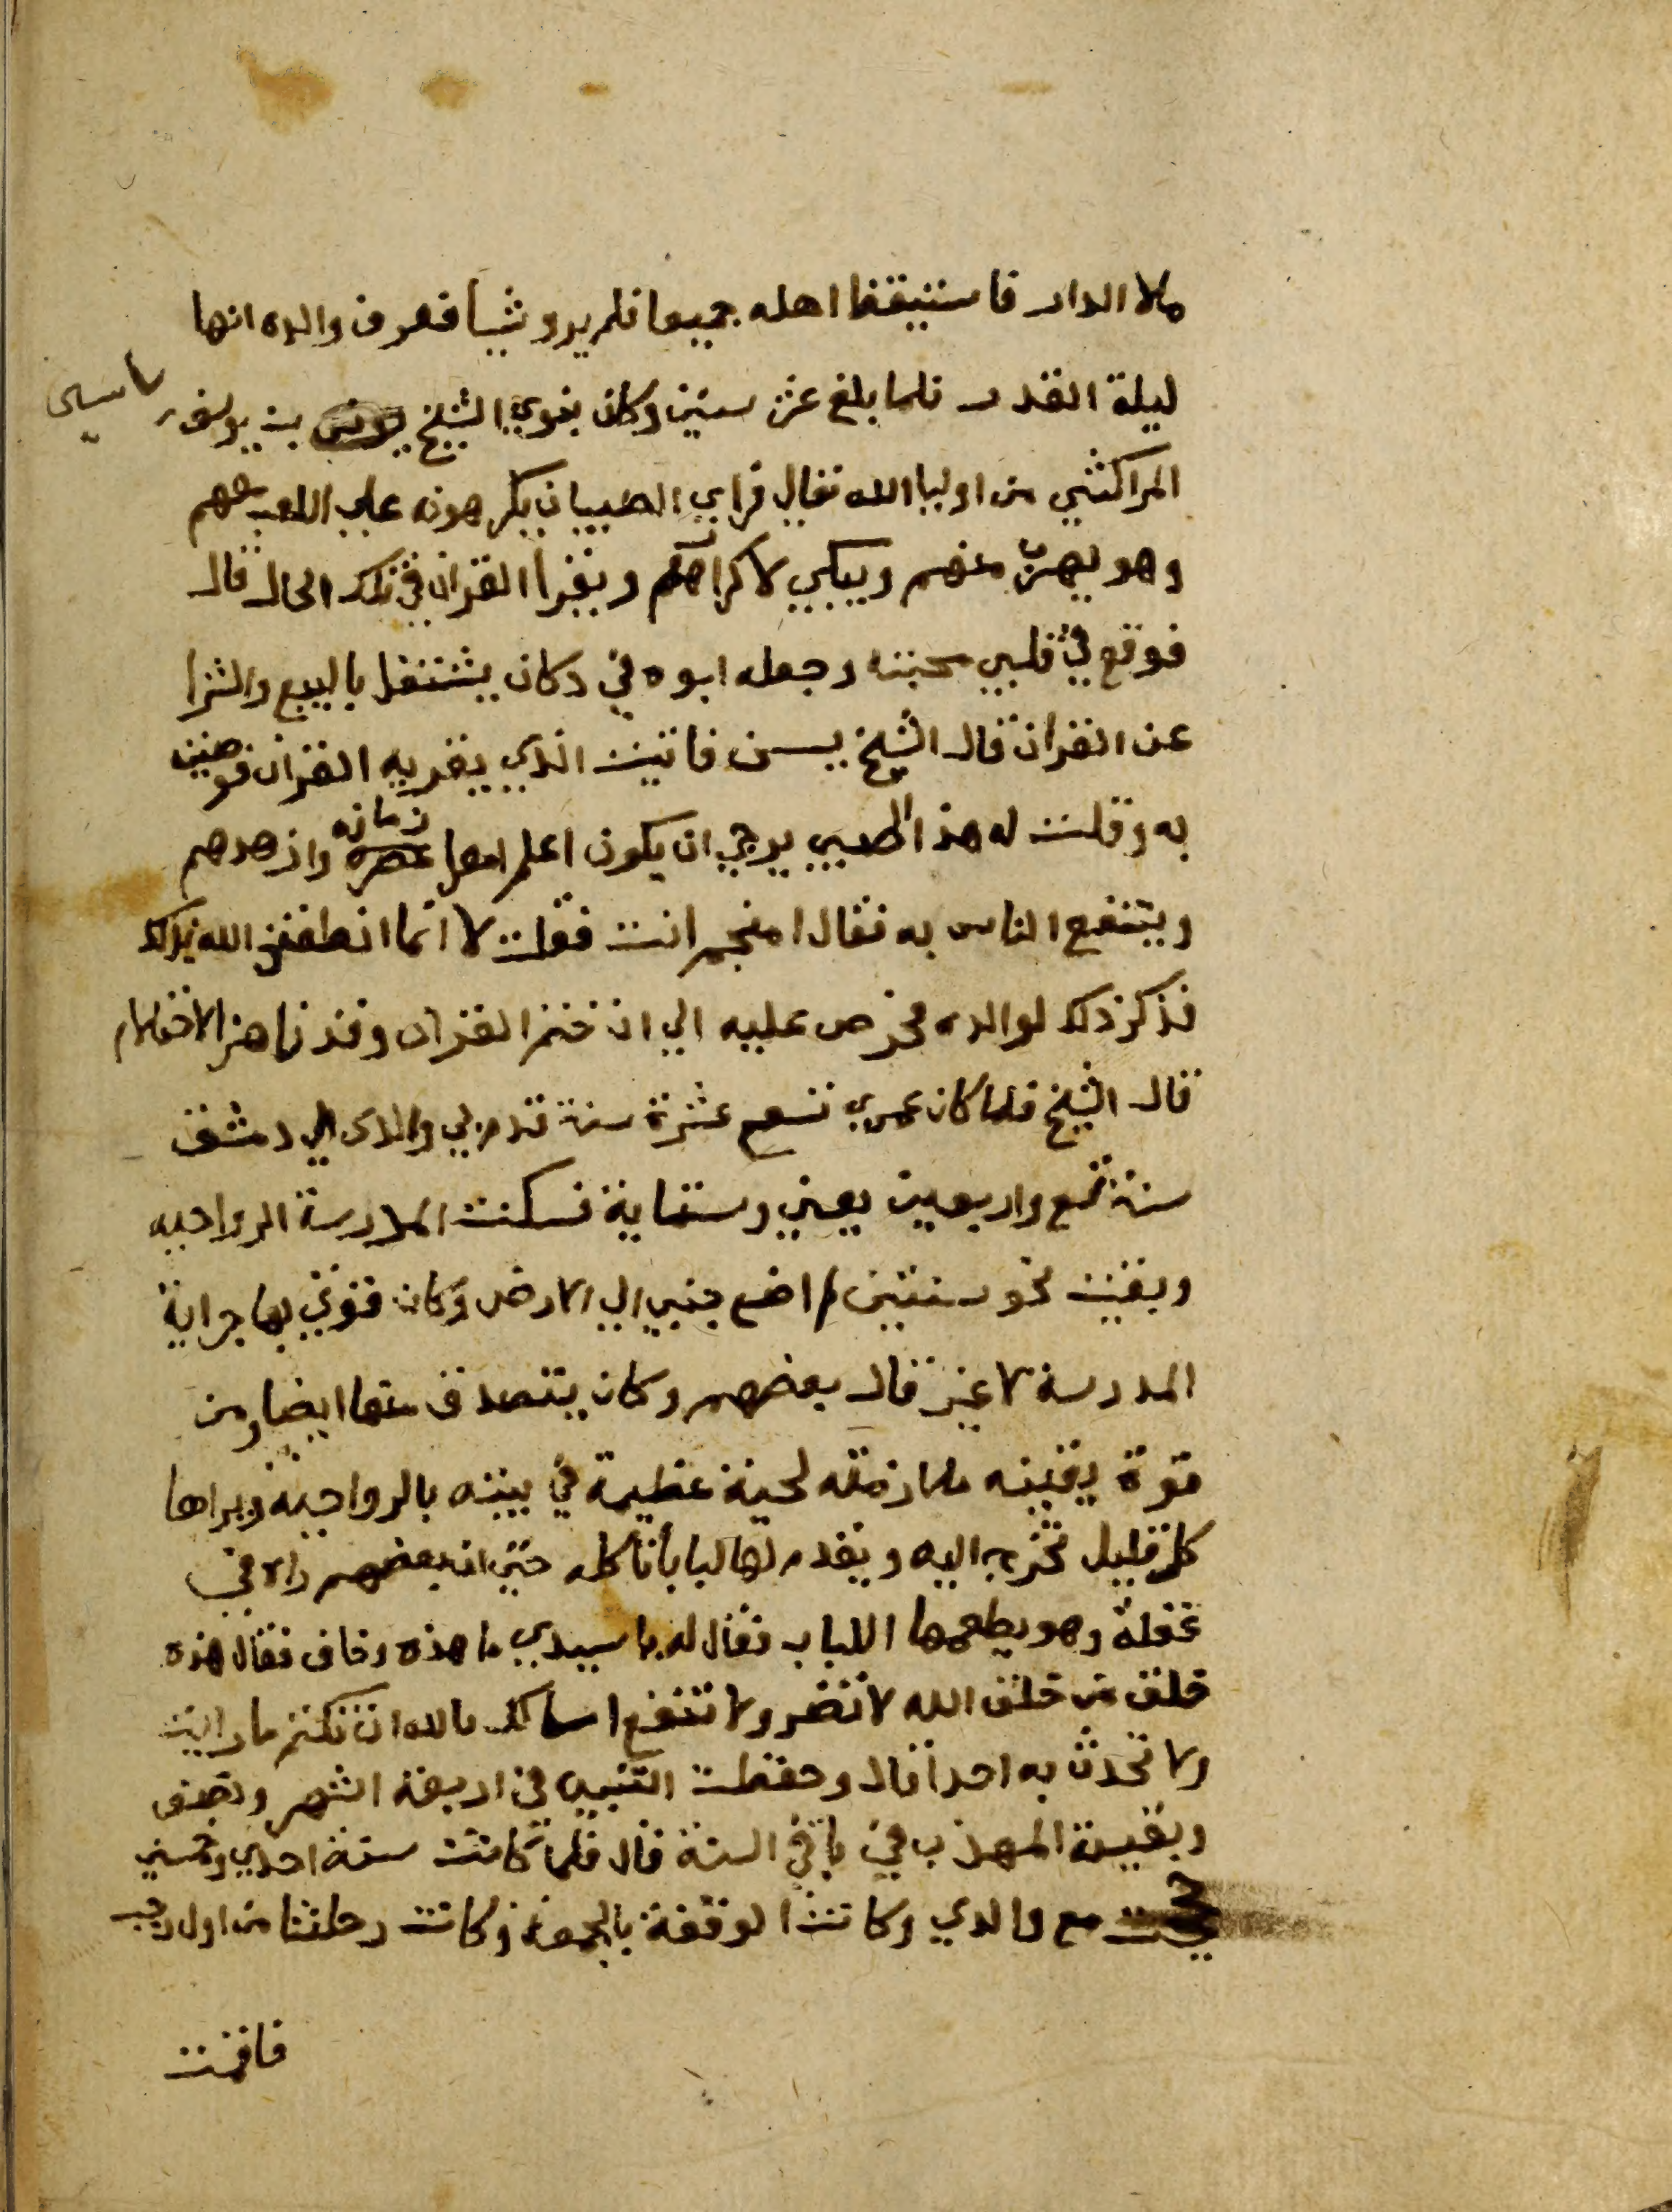 ملا الدار فاستيقظ اهله جميعا فلم يروشيأ فعرف والده انها
ليلة القدر فلما بلغ عشر سنين وكان بنوي الشيخ يونس بن يوسف ياسين
المراكشي من اوليا الله تعالي فراي الصبيان يكرهونه علي اللعب معهم
وهو يهرب منهم ويبكي لاكراههم ويقرا القران في تلك الحال قال
فوقع في قلبي محبته وجعله ابوه في دكان يشتغل بالبيع والشرا
عن القران قال الشيخ يسن فاتيت الذي يقريه القران فوصيت
به وقلت له هذا الصبي يرجي ان يكون اعلم اهل عصره زمانه وازهدهم
وينتفع الناس به فقال امنجم انت فقلت لا انما انطقني الله بذلك
فذكر ذلك لوالده فحرص عليه الي ان ختم القران وقد ناهز الاحتلام
قال الشيخ فلما كان عمري تسع عشرة سنة قدم بي والدي الي دمشق
سنة تسع واربعين يعني وستماية فسكنت المدرسة الرواحيه
وبقيت نحو سنتين لم اضع جنبي الي الارض وكان قوتي بها جراية
المدرسة لا غير قال بعضهم وكان يتصدق منها ايضا ومن
قوة يقينه ملازمته لحية عظيمة في بيته بالرواحية ويراها
كل قليل تخرج اليه ويقدم لها لبابا تاكله حتي ان بعضهم راه في
غفلة وهو يطعمها اللباب فقال له يا سيدي ما هذه وخاف فقال هذه
خلق من خلق الله لا تضر ولا تنفع اسالك بالله ان تكتم ما رايت
ولا تحدث به احدا قال وحفظت التنبيه في اربعة اشهر ونصف
وبقية المهذب في باقي السنة قال فلما كانت سنة احدي وخمسين
حججت مع والدي وكانت الوقفة بالجمعة وكانت رحلتنا من اول رجب
فاقمت